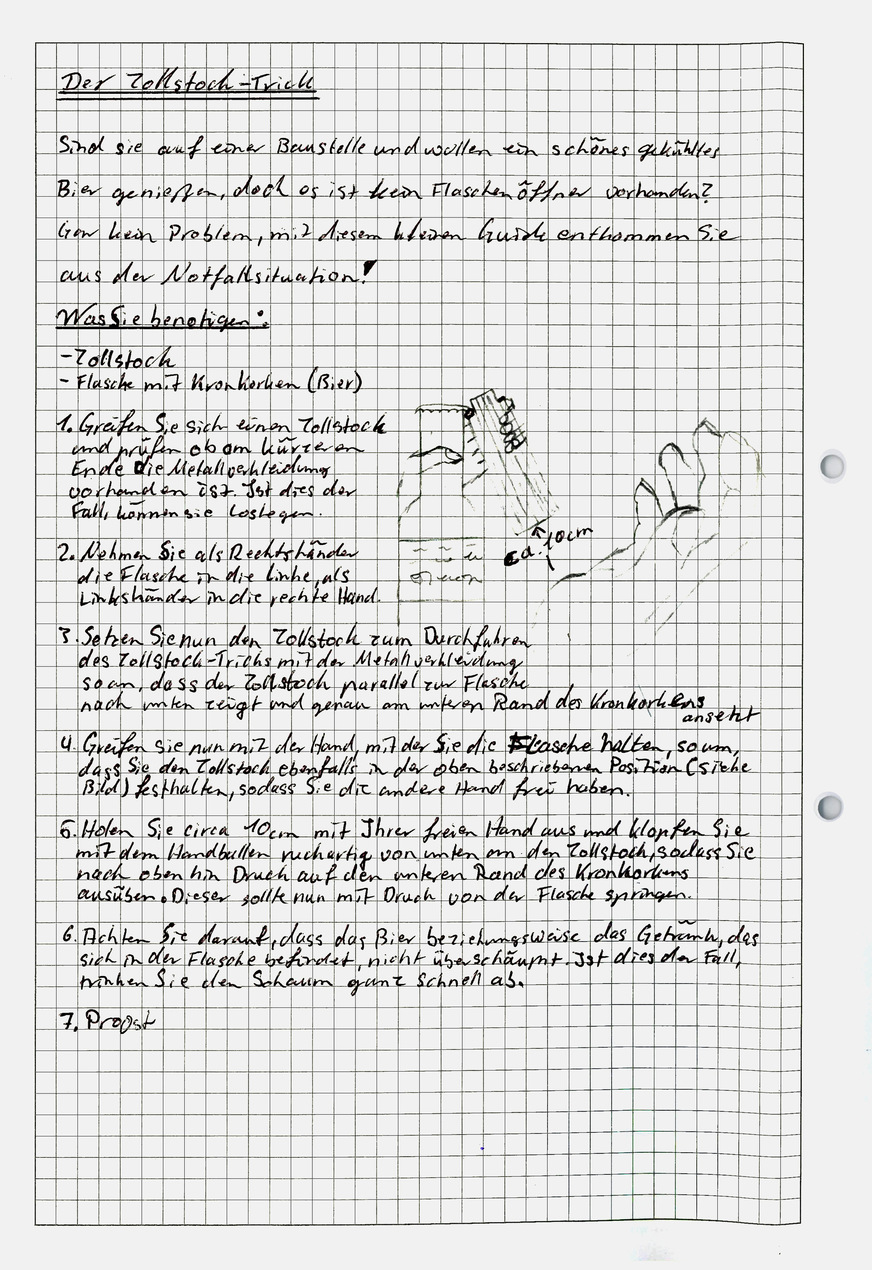 Der Zollstock-Trick
Sind sie auf einer Baustelle und wollen ein schönes gekühltes
Bier genießen, doch es ist kein Flaschenöffner vorhanden?
Gar kein Problem, mit diesem kleinen Guide entkommen Sie
aus der Notfallsituation!
Was Sie benötigen:
- Zollstock
- Flasche mit Kronkorken (Bier)
1. Greifen Sie sich einen Zollstock
und prüfen ob am kürzeren
Ende die Metallverkleidung
vorhanden ist. Ist dies der
Fall, können sie loslegen.
ca. 10cm
2. Nehmen Sie als Rechtshänder
die Flasche in die linke, als
Linkshänder in die rechte Hand.
3. Setzen Sie nun den Zollstock zum Durchführen
des Zollstock-Tricks mit der Metallverkleidung
so an, dass der Zollstock parallel zur Flasche
nach unten zeigt und genau am unteren Rand des Kronkorkens
ansetzt
4. Greifen sie nun mit der Hand, mit der Sie die Flasche halten, so um,
dass Sie den Zollstock ebenfalls in der oben beschriebenen Position (siehe
Bild) festhalten, sodass Sie die andere Hand frei haben.
5. Holen Sie circa 10cm mit Ihrer freien Hand aus und klopfen Sie
mit dem Handballen ruckartig von unten an den Zollstock, sodass Sie
nach oben hin Druck auf den unteren Rand des Kronkorkens
ausüben. Dieser sollte nun mit Druck von der Flasche springen.
6. Achten Sie darauf, dass das Bier beziehungsweise das Getränk, das
sich in der Flasche befindet, nicht überschäumt. Ist dies der Fall,
trinken Sie den Schaum ganz schnell ab.
7. Proost